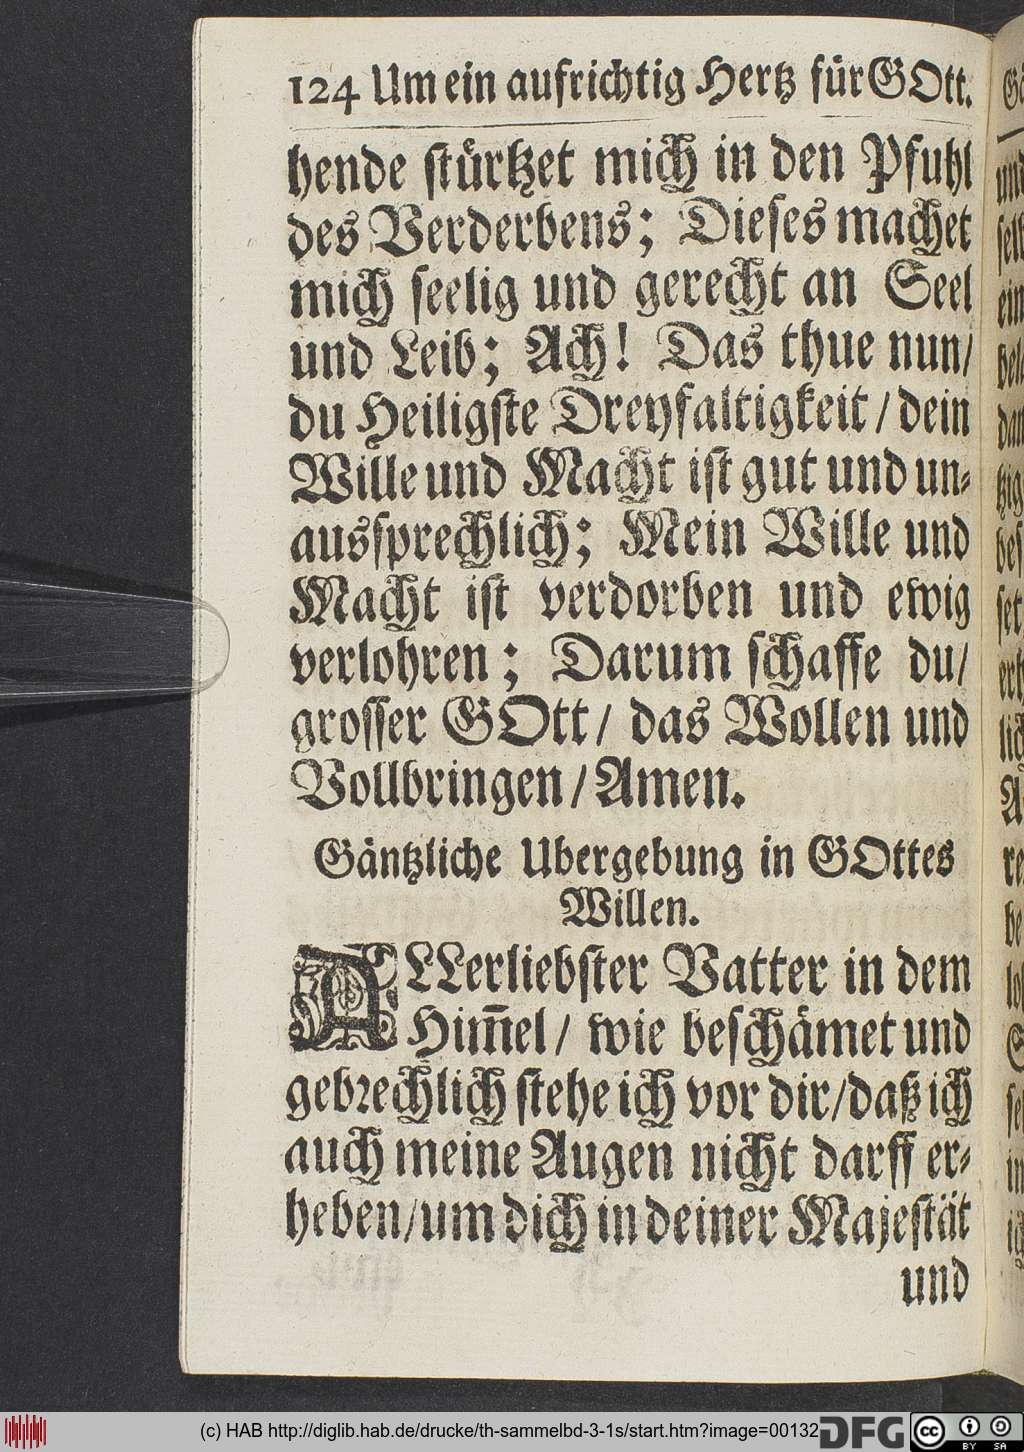 124 Um ein aufrichtig Hertz für GOtt.
hende stürtzet mich in den Pfuhl
des Verderbens; Dieses machet
mich seelig und gerecht an Seel
und Leib; Ach! Das thue nun/
du Heiligste Dreyfaltigkeit/dein
Wille und Macht ist gut und un-
aussprechlich; Mein Wille und
Macht ist verdorben und ewig
verlohren; Darum schaffe du/
grosser GOtt/ das Wollen und
Vollbringen/Amen.
Gäntzliche Ubergebung in GOttes
Willen.
ALLerliebster Vatter in dem
Him̄el/ wie beschämet und
gebrechlich stehe ich vor dir/daß ich
auch meine Augen nicht darff er-
heben/um dich in deiner Majestät
und
(c) HAB http://diglib.hab.de/drucke/th-sammelbd-3-1s/start.htm?image=00132
DFG
cc BY SA